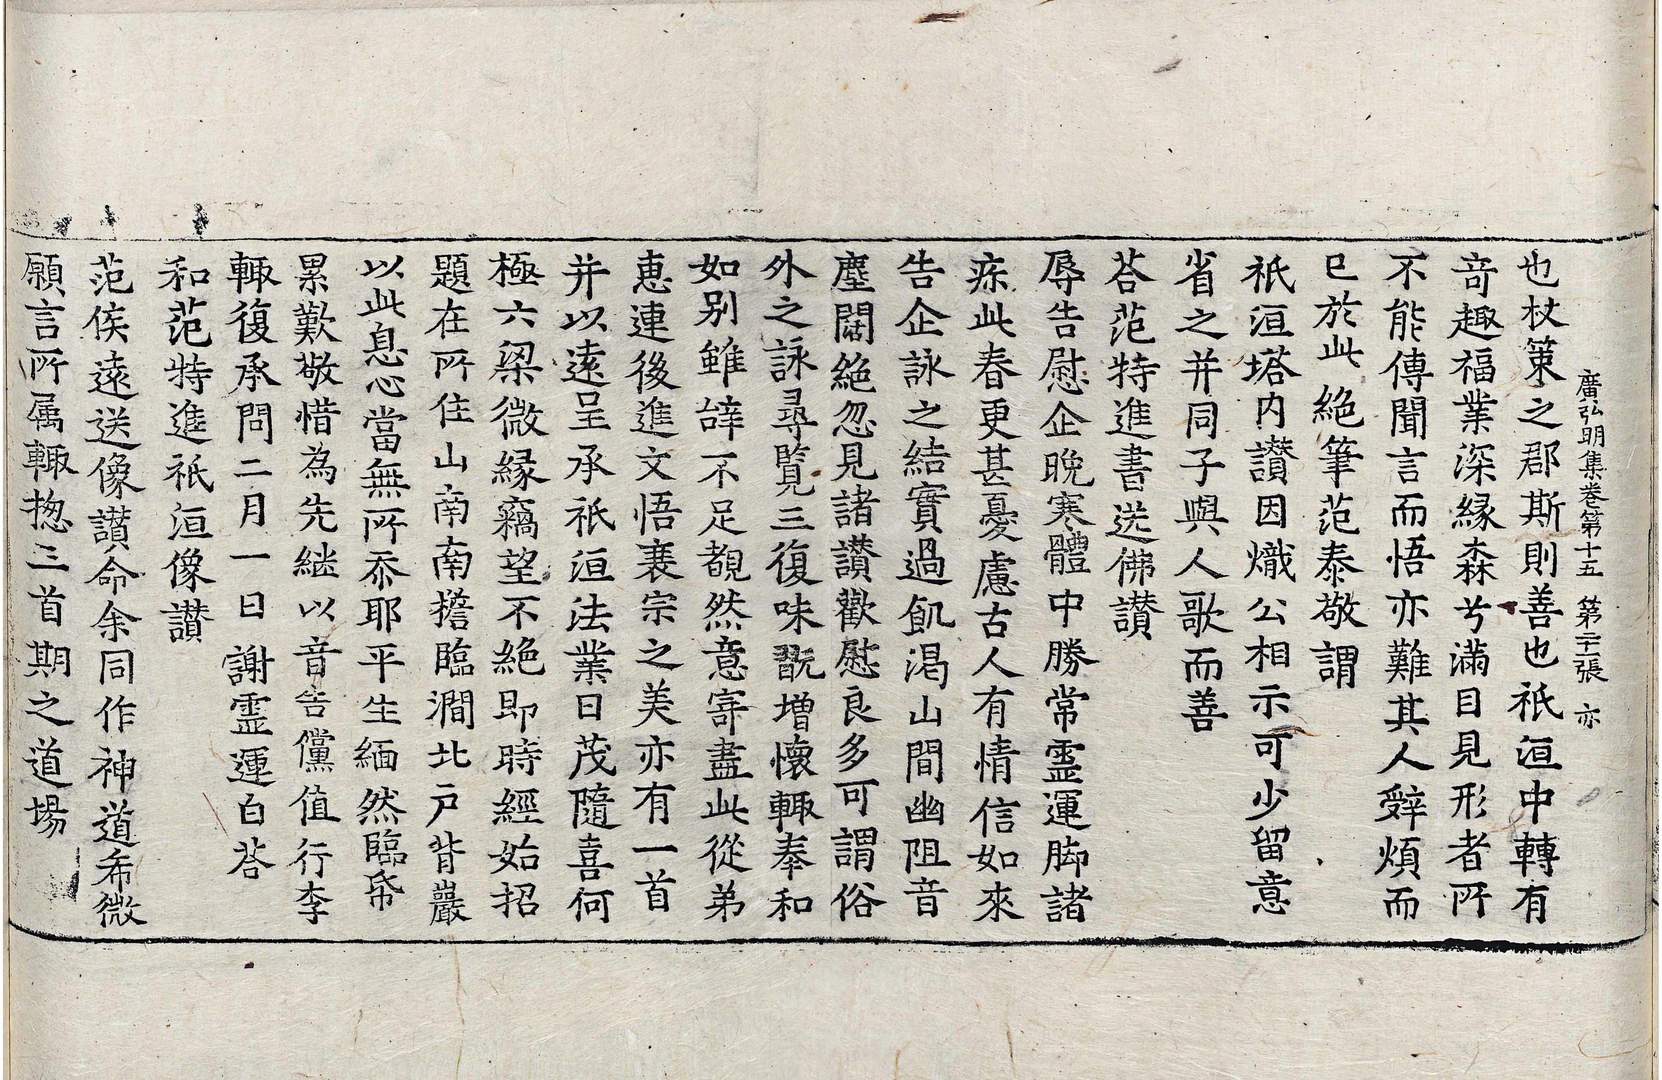 廣弘明集卷第十五 第二十三張 亦
也杖策之郡斯則善也祇洹中轉有
奇趣福業深緣森兮滿目見形者所
不能傳聞言而悟亦難其人辤煩而
已於此絕筆范泰敬謂
祇洹塔內讃因熾公相示可少留意
省之并同子與人歌而善
荅范特進書送佛讃
辱告慰企晚寒體中勝常靈運脚諸
疾此春更甚憂慮古人有情信如來
告企詠之結實過飢渴山間幽阻音
塵闊絕忽見諸讃歡慰良多可謂俗
外之詠尋覽三復味翫增懷輙奉和
如別雖辞不足覩然意寄盡此從弟
惠連後進文悟襄宗之美亦有一首
并以遠呈承祇洹法業日茂隨喜何
極六梁微緣竊望不絕即時經始招
題在所住山南南檐臨澗北戶背巖
以此息心當無所忝耶平生緬然臨帋
累歎敬惜為先継以音告儻值行李
輙復承問二月一日 謝靈運白荅
和范特進祇洹像讃
范侯遠送像讃命余同作神道希微
願言所属輙揔三首期之道場